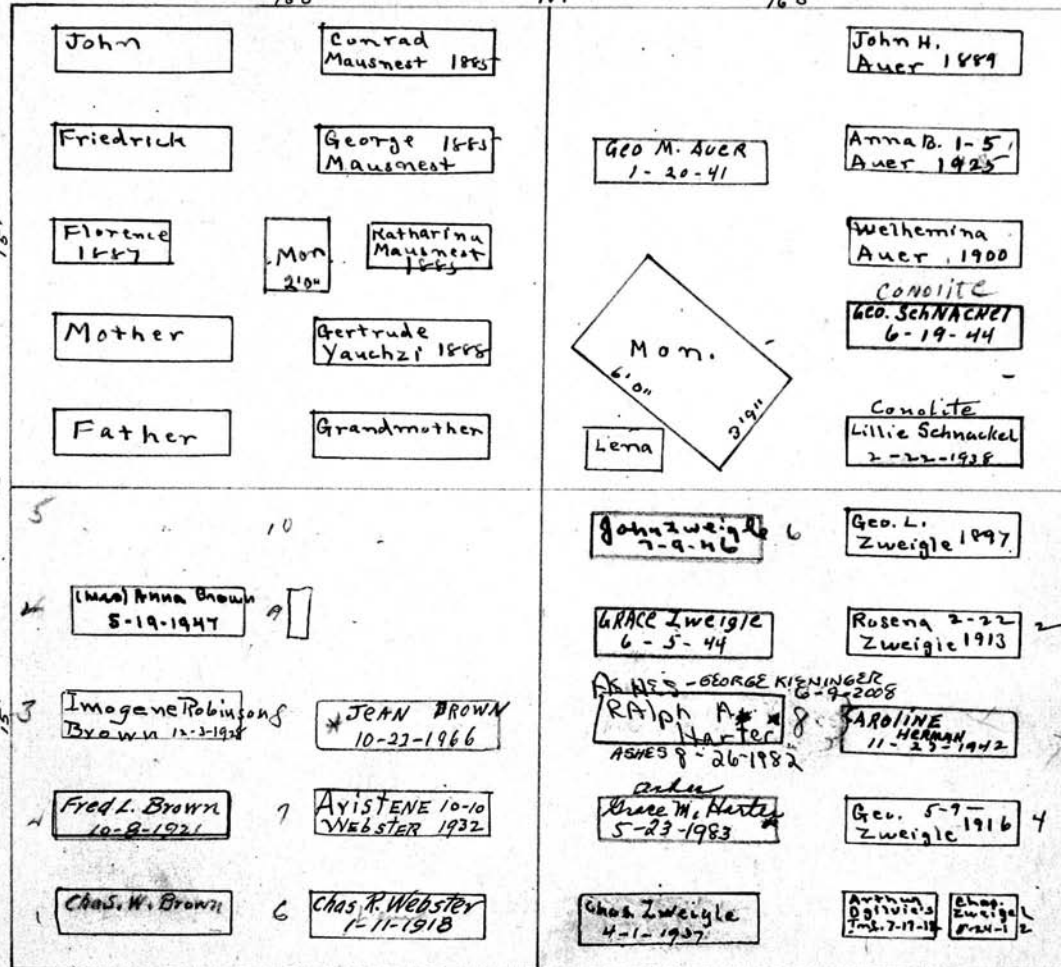 John
Conrad
Mausnest 1885
Friedrick
George 1885
Mausnest
Florence
1887
Mon
2'0"
Katharina
Mausnest
1885
Mother
Gertrude
Yauchzi 1888
Father
Grandmother
John H.
Auer 1889
Geo M. Auer
1-20-41
Anna B. 1-5
Auer 1925
Welhemina
Auer 1900
Conolite
Geo. Schnackel
6-19-44
Mon.
6'0"
3'9"
Lena
Conolite
Lillie Schnackel
2-22-1938
5
10
4
(Mrs) Anna Brown
5-19-1947
9
3
Imogene Robinson
Brown 12-3-1928
8
* JEAN BROWN
10-22-1966
Fred L. Brown
10-8-1921
7
AristENE 10-10
WEbSTER 1932
1
Chas. W. Brown
6
Chas. R. Webster
1-11-1918
John Zweigle
7-9-46
6
Geo. L.
Zweigle 1897
GRACE Zweigle
6-5-44
Rosena 2-22
Zweigle 1913
2
ASHES - GEORGE KIENINGER
6-9-2008
RAlph A.
Harter
8
ASHES 8-26-1982
CAROLINE
HERMAN
11-23-1942
ashes
Grace M. Harter
5-23-1983
Geo. 5-9-
Zweigle 1916
4
Chas. Zweigle
4-1-1937
Arthur
Ogilvie's
Inf. 7-17-12
Chas.
Zweigel